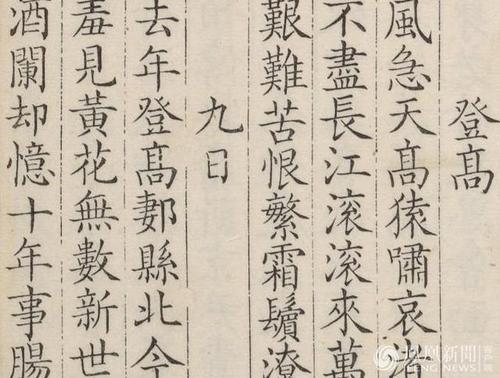 登高
風急天高猿嘯哀
不盡長江滚滚來萬
艱難苦恨繁霜鬢潦
九日
去年登高郪縣北今
羞見黃花無數新世
酒闌却憶十年事腸
鳳凰新聞 客戶端
IFENG NEWS